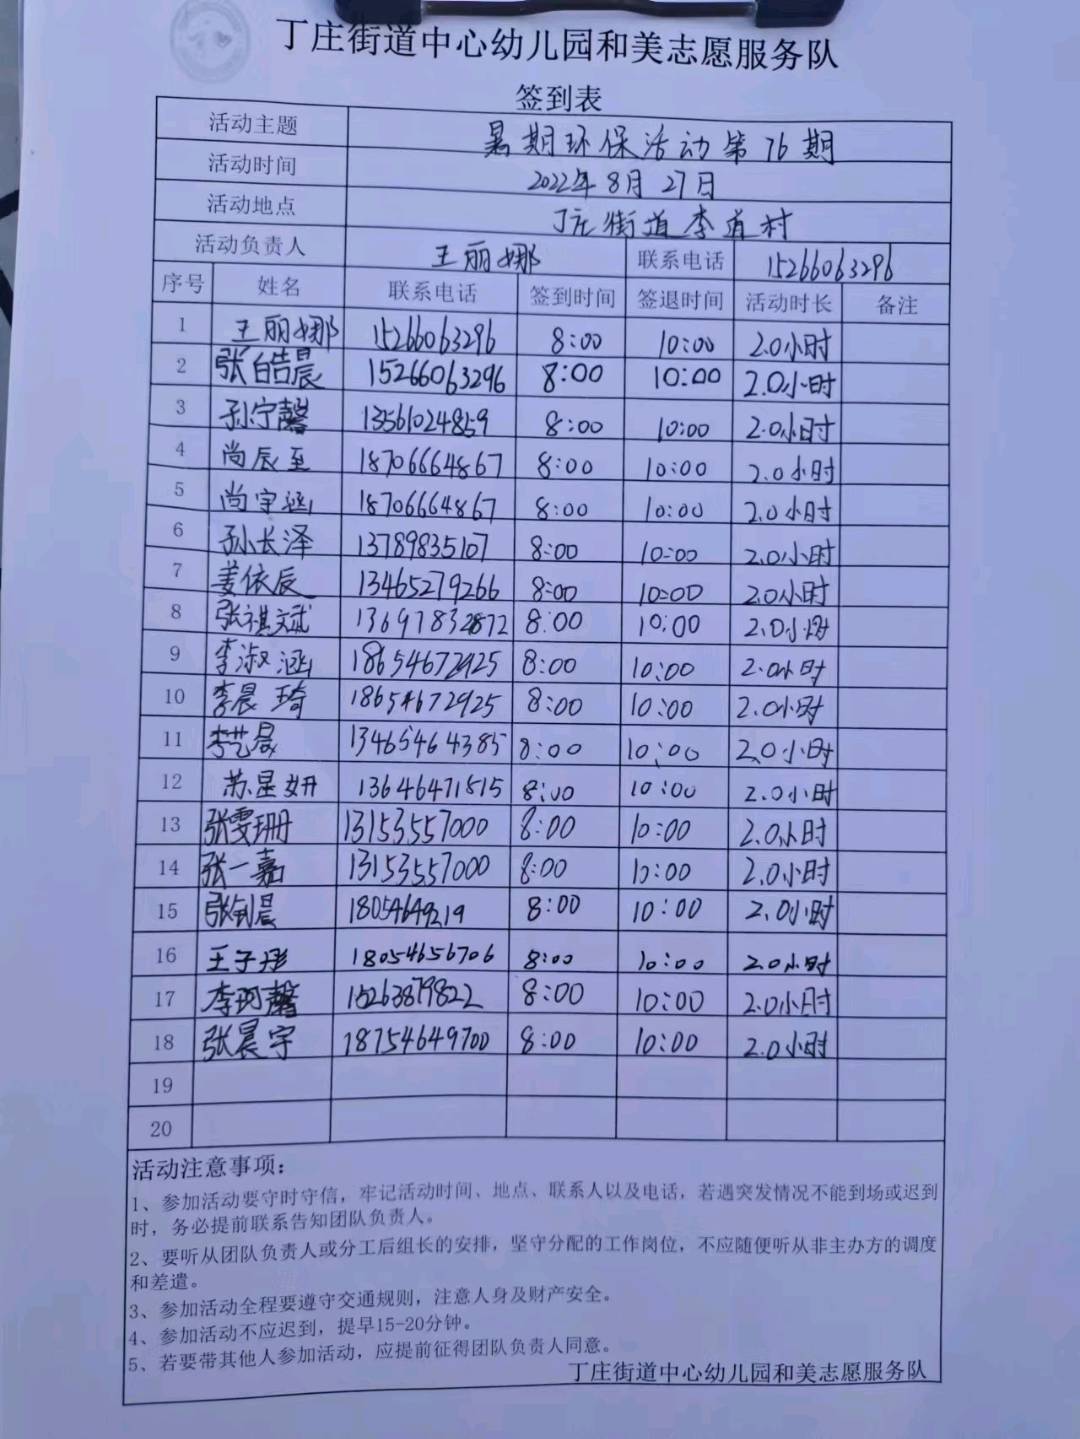 丁庄街道中心幼儿园和美志愿服务队
签到表
活动主题 暑期环保活动第76期
活动时间 2022年8月27日
活动地点 丁庄街道李道村
活动负责人 王丽娜 联系电话 15266063296
序号 姓名 联系电话 签到时间 签退时间 活动时长 备注
1 王丽娜 15266063296 8:00 10:00 2.0小时
2 张皓晨 15266063296 8:00 10:00 2.0小时
3 孙宁馨 13561024859 8:00 10:00 2.0小时
4 尚辰至 18706664867 8:00 10:00 2.0小时
5 尚宇涵 18706664867 8:00 10:00 2.0小时
6 孙长泽 13789835107 8:00 10:00 2.0小时
7 姜依辰 13465279266 8:00 10:00 2.0小时
8 张祺斌 13697832872 8:00 10:00 2.0小时
9 李淑涵 18654672925 8:00 10:00 2.0小时
10 李晨琦 18654672925 8:00 10:00 2.0小时
11 李艺晨 13465464385 8:00 10:00 2.0小时
12 苏星妍 13646471515 8:00 10:00 2.0小时
13 张雯珊 13153557000 8:00 10:00 2.0小时
14 张一嘉 13153557000 8:00 10:00 2.0小时
15 8:00 10:00 2.0小时
16 王子彤 18054656706 8:00 10:00 2.0小时
17 李珂馨 15263879822 8:00 10:00 2.0小时
18 张晨宇 18754649700 8:00 10:00 2.0小时
19
20
活动注意事项：
1、参加活动要守时守信，牢记活动时间、地点、联系人以及电话，若遇突发情况不能到场或迟到
时，务必提前联系告知团队负责人。
2、要听从团队负责人或分工后组长的安排，坚守分配的工作岗位，不应随便听从非主办方的调度
和差遣。
3、参加活动全程要遵守交通规则，注意人身及财产安全。
4、参加活动不应迟到，提早15-20分钟。
5、若要带其他人参加活动，应提前征得团队负责人同意。
丁庄街道中心幼儿园和美志愿服务队